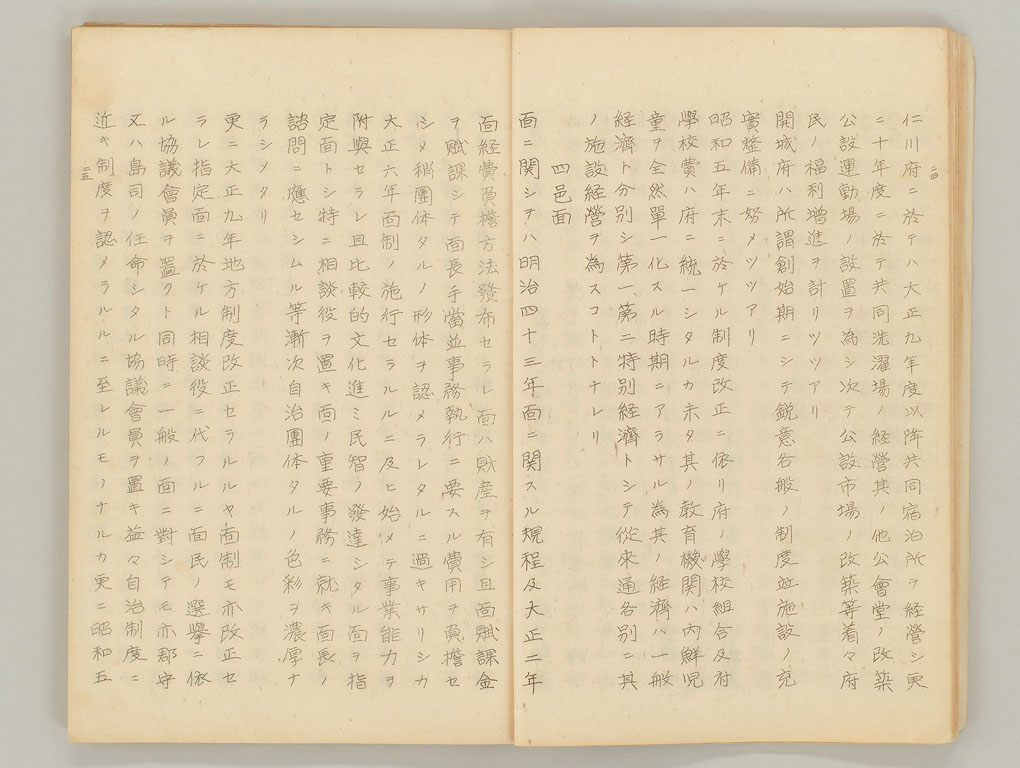 二四
仁川府ニ於テハ大正九年度以降共同宿泊所ヲ経營シ更
ニ十年度ニ於テ共同洗濯場ノ経營其ノ他公會堂ノ改築
公設運動場ノ設置ヲ為シ次テ公設市場ノ改築等着々府
民ノ福利増進ヲ計リツツアリ
開城府ハ所謂創始期ニシテ鋭意各般ノ制度並施設ノ充
實整備ニ努メツツアリ
昭和五年末ニ於ケル制度改正ニ依リ府ノ學校組合及府
學校費ハ府ニ統一シタルカ未タ其ノ教育機関ハ内鮮児
童ヲ全然單一化スル時期ニアラサル為其ノ経濟ハ一般
経濟ト分別シ第一第二特別経濟トシテ従來通各別ニ其
ノ施設経營ヲ為スコトトナレリ
四邑面
面ニ関シテハ明治四十三年面ニ関スル規程及大正二年
面経費負擔方法發布セラレ面ハ財産ヲ有シ且面賦課金
ヲ賦課シテ面長手當並事務執行ニ要スル費用ヲ負擔セ
シメ稍團体タルノ形体ヲ認メラレタルニ過キサリシカ
大正六年面制ノ施行セラルルニ及ヒ始メテ事業能力ヲ
附與セラレ且比較的文化進ミ民智ノ發達シタル面ヲ指
定面トシ特ニ相談役ヲ置キ面ノ重要事務ニ就キ面長ノ
諮問ニ應セシムル等漸次自治團体タルノ色彩ヲ濃厚ナ
ラシメタリ
更ニ大正九年地方制度改正セラルルヤ面制モ亦改正セ
ラレ指定面ニ於ケル相談役ニ代フルニ面民ノ選擧ニ依
ル協議會員ヲ置クト同時ニ一般ノ面ニ對シテモ亦郡守
又ハ島司ノ任命シタル協議會員ヲ置キ益々自治制度ニ
近キ制度ヲ認メラルルニ至レルモノナルカ更ニ昭和五
二五